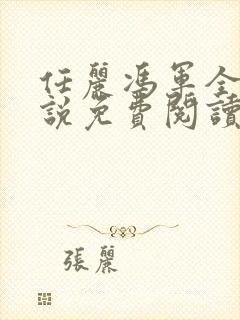 任麗馮軍全
說免費閱讀
張麗